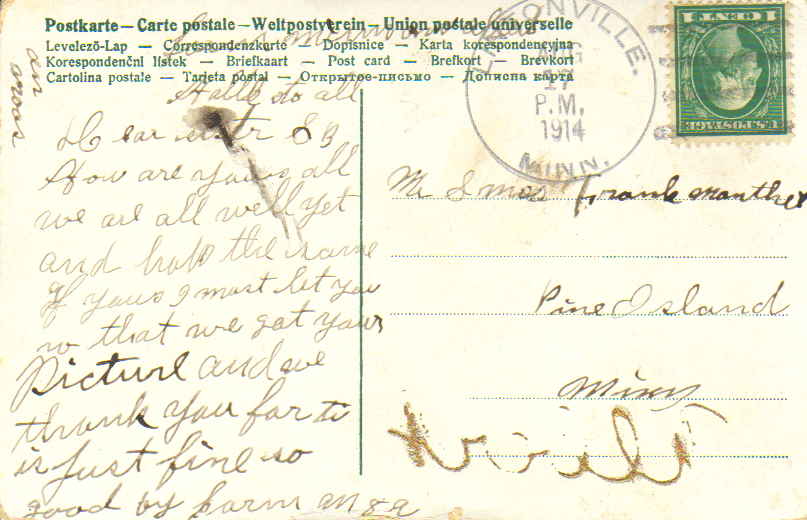 Postkarte — Carte postale — Weltpostverein — Union postale universelle
Levelező-Lap — Correspondenzkarte — Dopisnice — Karta korespondencyjna
Korespondenční lístek — Briefkaart — Post card — Brefkort — Brevkort
Cartolina postale — Tarjeta postal — Открытое-письмо — Дописна карта
LAMSONVILLE.
AUG
17
P.M.
1914
MINN.
1 CENT 1
U.S. POSTAGE
to all
Dear
How are yous all
we are all well yet
and hop the same
of yous I must let you
no that we got your
Picture and we
thank you for it
is just fine so
good by
Mr & mrs Frank Manthei
Pine Island
Minn